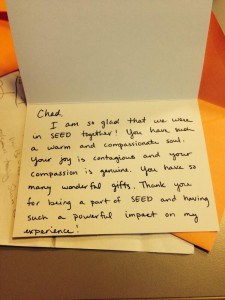 Ched,
I am so glad that we were
in SEED together! You have such
a warm and compassionate soul.
Your joy is contagious and your
compassion is genuine. You have so
many wonderful gifts. Thank you
for being a part of SEED and having
such a powerful impact on my
experience!